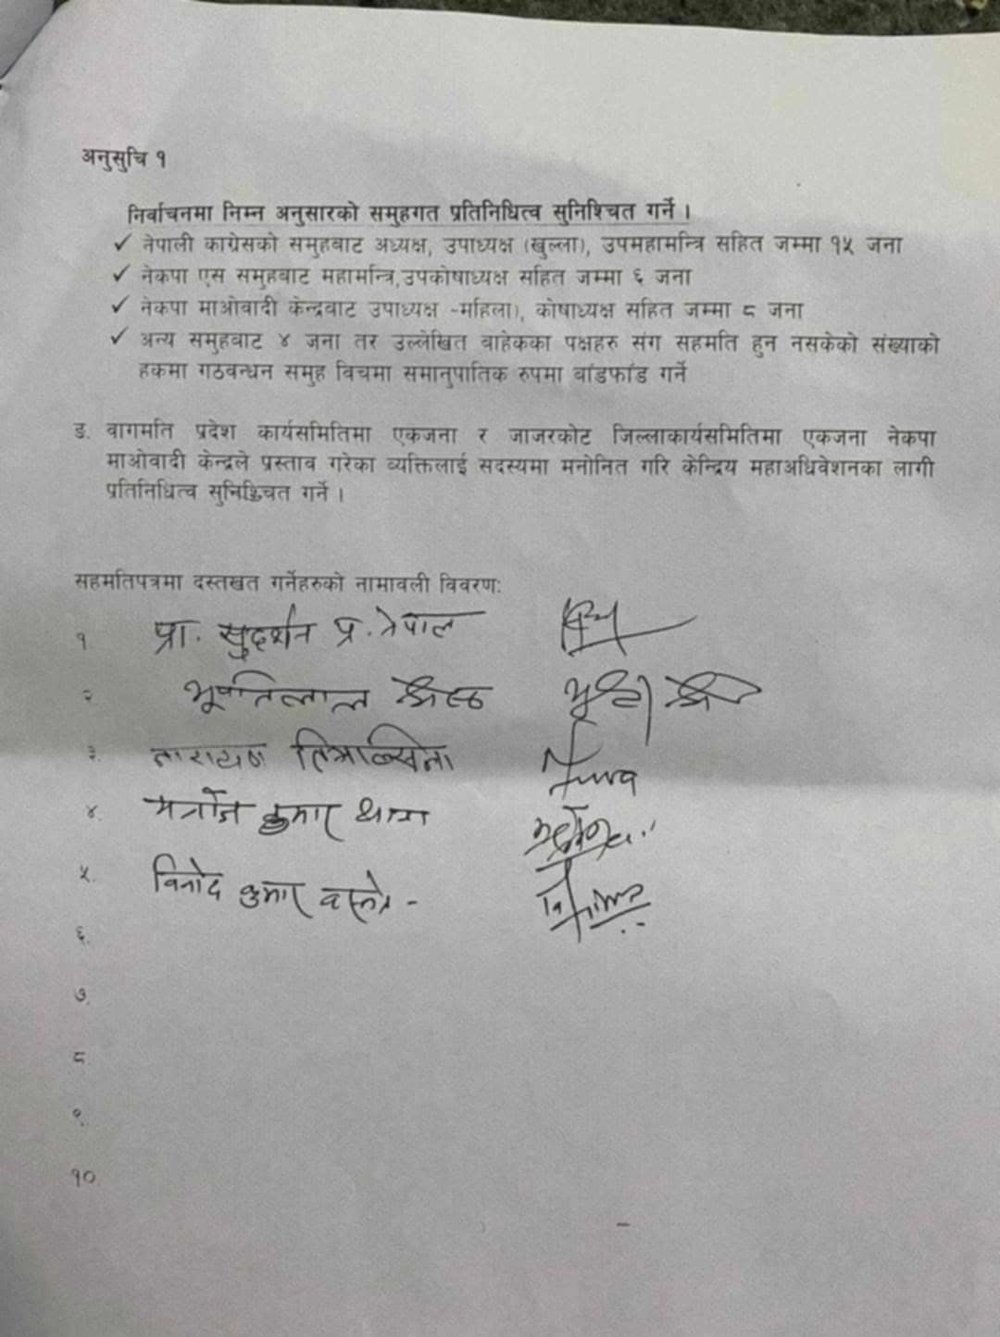 अनुसुचि १
निर्वाचनमा निम्न अनुसारको समुहगत प्रतिनिधित्व सुनिश्चित गर्ने ।
✓ नेपाली काग्रेसको समुहबाट अध्यक्ष, उपाध्यक्ष (खुल्ला), उपमहामन्त्रि सहित जम्मा १५ जना
✓ नेकपा एस समुहबाट महामन्त्रि,उपकोषाध्यक्ष सहित जम्मा ६ जना
✓ नेकपा माओवादी केन्द्रबाट उपाध्यक्ष -महिला), कोषाध्यक्ष सहित जम्मा ८ जना
✓ अन्य समुहबाट ४ जना तर उल्लेखित बाहेकका पक्षहरु संग सहमति हुन नसकेको संख्याको
हकमा गठवन्धन समुह विचमा समानुपातिक रुपमा बांडफांड गर्ने
ङ. वागमति प्रदेश कार्यसमितिमा एकजना र जाजरकोट जिल्लाकार्यसमितिमा एकजना नेकपा
माओवादी केन्द्रले प्रस्ताव गरेका व्यक्तिलाई सदस्यमा मनोनित गरि केन्द्रिय महाअधिवेशनका लागी
प्रतिनिधित्व सुनिश्चित गर्ने ।
सहमतिपत्रमा दस्तखत गर्नेहरुको नामावली विवरण:
१ प्रा. सुदर्शन प्र. नेपाल
२ भूपतिलाल श्रेष्ठ
३. नारायण तिमल्सिना
४. मनोज कुमार थापा
५. विनोद कुमार वस्नेत -
६.
७.
८
९.
१०